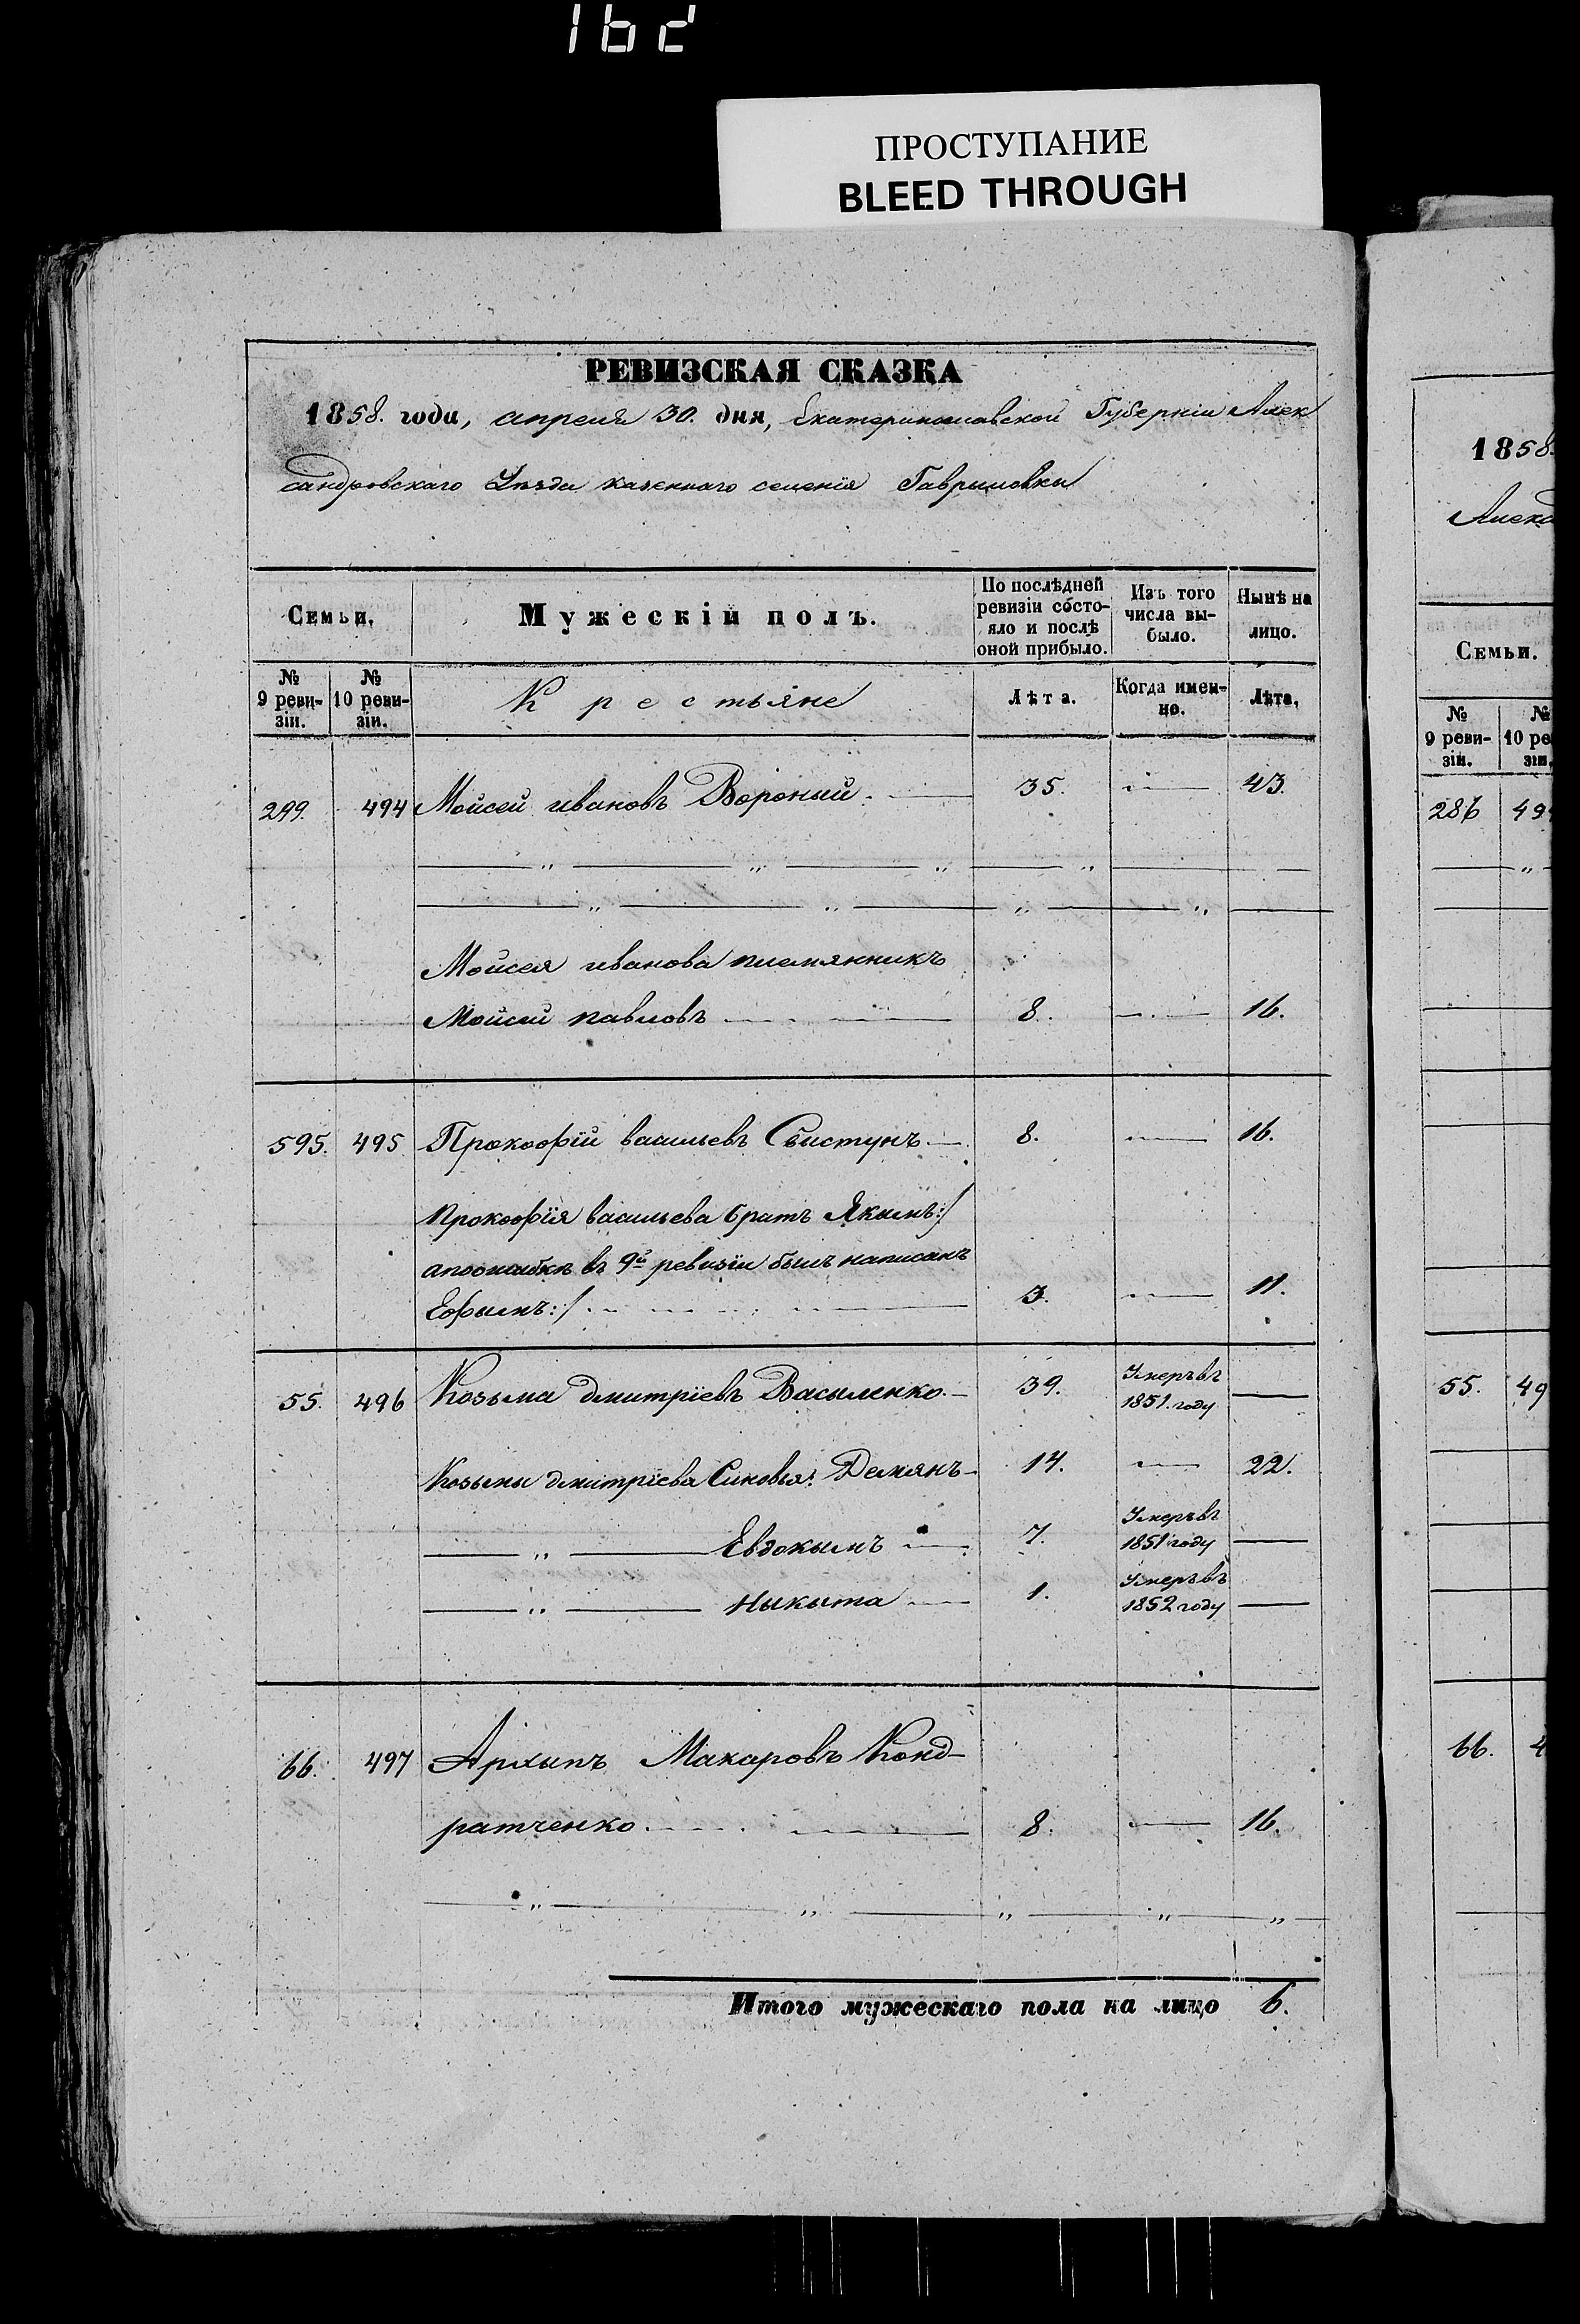 162
ПРОСТУПАНИЕ
BLEED THROUGH
РЕВИЗСКАЯ СКАЗКА
1858. года, апреля 30. дня, Екатеринославской Губерніи Алек
сандровскаго Уѣзда казеннаго селенія Гаврыловки
Семьи. Мужескій полъ. По послѣдней ревизіи состояло и послѣ оной прибыло. Изъ того числа выбыло. Нынѣ на лицо.
№ 9 ревизіи. № 10 ревизіи. Крестьяне Лѣта. Когда именно. Лѣта.
299. 494 Мойсей ивановъ Вороный 35. 43.
Мойсея иванова племянникъ
Мойсей павловъ 8. 16.
595. 495 Прокофій васильевъ Свистунъ 8. 16.
Прокофія васильева братъ Якымъ:/
апоошибкѣ въ 9й ревизіи былъ написанъ
Ефымъ:/ 3. 11.
55. 496 Козьма дмитріевъ Василенко 39. Умеръ въ 1851. году
Козьмы дмитріева Сыновья: Демянъ 14. 22.
" Евдокымъ 7. Умеръ въ 1851 году
" Ныкыта 1. Умеръ въ 1852 году
66. 497 Архыпъ Макаровъ Конд-
ратченко 8. 16.
Итого мужескаго пола на лицо 6.
1858.
Алекс
Семьи.
№ 9 ревизіи. № 10 ре зіи.
286 49
55. 49
66. 4